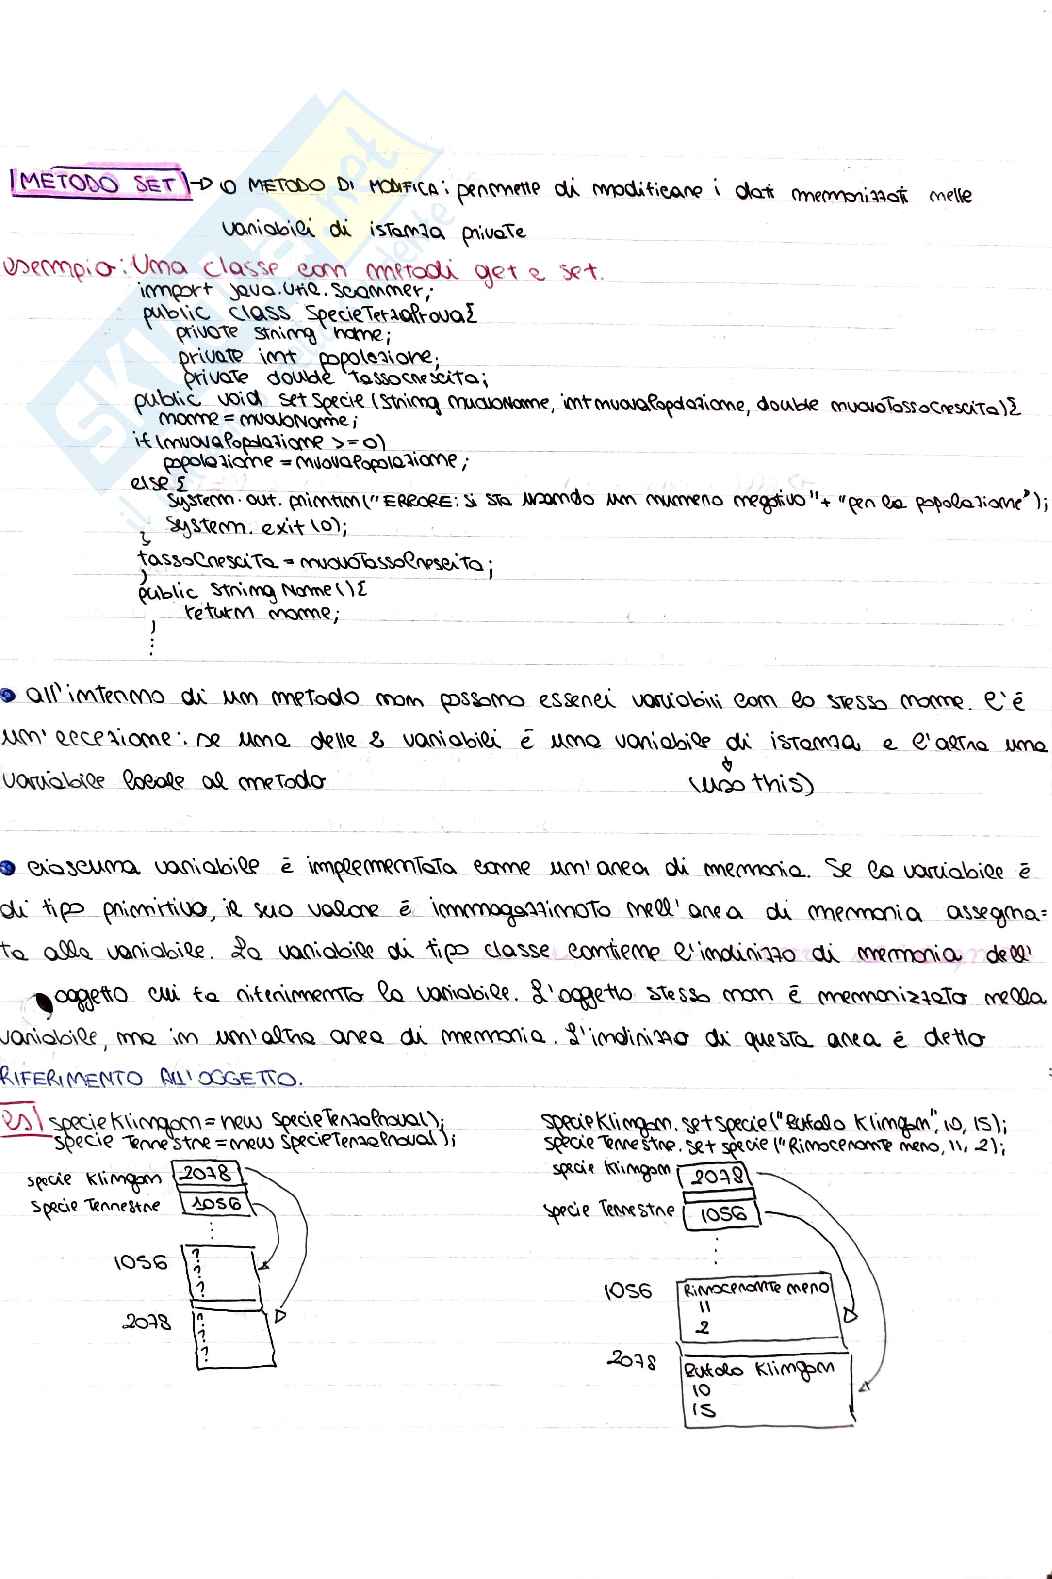 METODO SET → o METODO DI MODIFICA: permette di modificare i dati memorizzati nelle
variabili di istanza private
esempio: Una classe con metodi get e set.
import java.util.Scanner;
public class SpecieTerzaProva{
private String name;
private int popolazione;
private double tassocrescita;
public void setSpecie (String nuovoNome, int nuovaPopolazione, double nuovoTassoCrescita){
nome = nuovoNome;
if (nuovaPopolazione >= 0)
popolazione = nuovaPopolazione;
else {
System.out.println("ERRORE: si sta usando un numero negativo" + "per la popolazione");
System.exit(0);
}
tassoCrescita = nuovoTassoCrescita;
}
public String Nome(){
return nome;
}
⋮
• all'interno di un metodo non possono esserci variabili con lo stesso nome. C'è
un'eccezione: se una delle 2 variabili è una variabile di istanza e l'altra una
variabile locale al metodo (uso this)
• ciascuna variabile è implementata come un'area di memoria. Se la variabile è
di tipo primitivo, il suo valore è immagazzinato nell'area di memoria assegna=
ta alla variabile. La variabile di tipo classe contiene l'indirizzo di memoria dell'
oggetto cui fa riferimento la variabile. L'oggetto stesso non è memorizzato nella
variabile, ma in un'altra area di memoria. L'indirizzo di questa area è detto
RIFERIMENTO ALL'OGGETTO.
es) specieKlingon = new SpecieTerzaProva();
specie Terrestre = new SpecieTerzaProva();
specie Klingon 2078
specie Terrestre 1056
⋮
1056 ?
?
?
2078 ?
?
?
specieKlingon.setSpecie("Bufalo Klingon", 10, 15);
specie Terrestre.set specie ("Rinoceronte nero, 11, 2);
specie Klingon 2078
specie Terrestre 1056
⋮
1056 Rinoceronte nero
11
2
2078 Bufalo Klingon
10
15